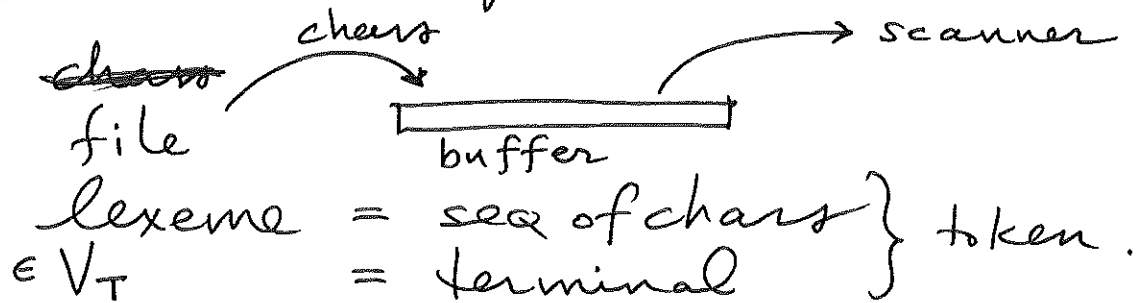 chars → scanner
file
buffer
lexeme = seq of chars } token.
∈ V_T = terminal